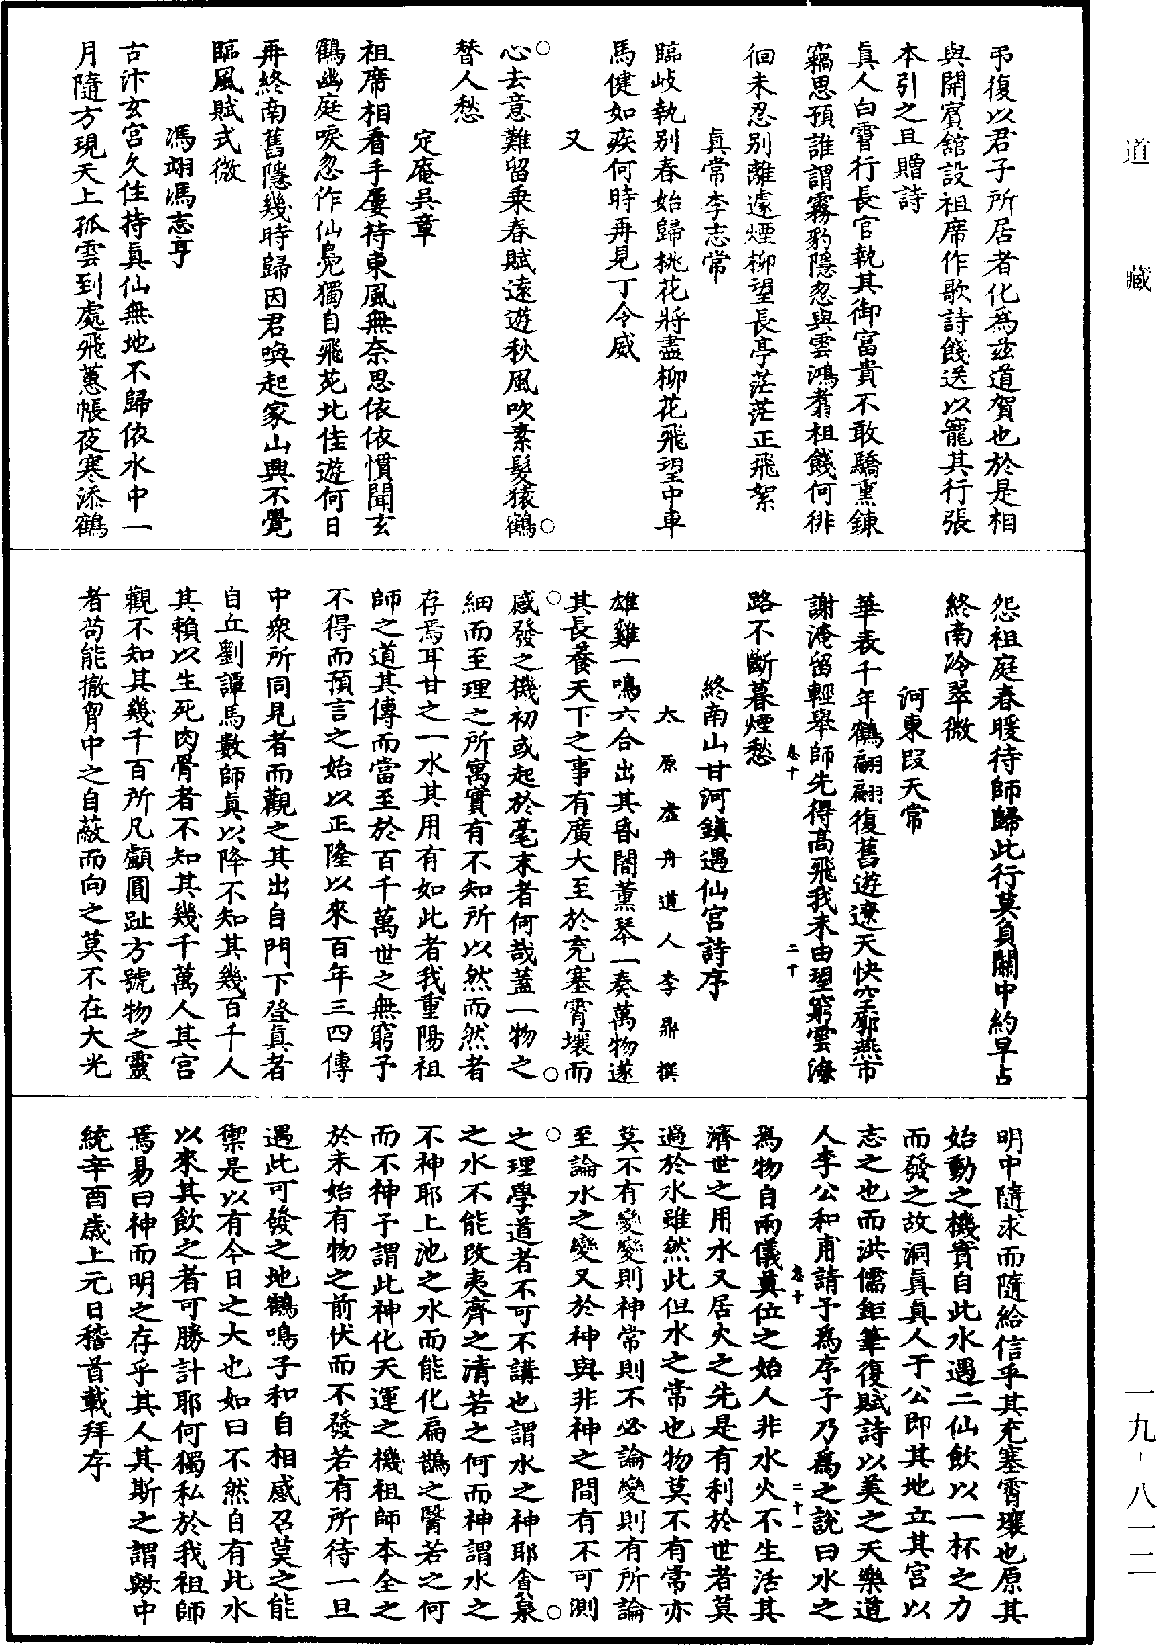 弔復以君子所居者化為茲道賀也於是相
與開賓館設祖席作歌詩餞送以寵其行張
本引之且贈詩
真人白霄行長官執其御富貴不敢驕熏鍊
竊思預誰謂霧豹隱忽與雲鴻翥祖餞何徘
徊未忍別離遽煙柳望長亭茫茫正飛絮
真常李志常
臨岐執別春始歸桃花將盡柳花飛望中車
馬健如疾何時再見丁令威
又
心去意難留乘春賦遠遊秋風吹素髮猿鶴
替人愁
定庵吳章
祖席相看手屢持東風無奈思依依慣聞玄
鶴幽庭唳忽作仙鳧獨自飛苑北佳遊何日
再終南舊隱幾時歸因君喚起家山興不覺
臨風賦式微
馮翊馮志亨
古汴玄宮久住持真仙無地不歸依水中一
月隨方現天上孤雲到處飛蕙帳夜寒添鶴
怨祖庭春暖待師歸此行莫負關中約早占
終南冷翠微
河東段天常
華表千年鶴翩翩復舊遊遼天快空廓燕市
謝淹留輕舉師先得高飛我未由望窮雲海
卷十
二十
路不斷暮煙愁
終南山甘河鎮遇仙宮詩序
太原虛舟道人李鼎撰
雄雞一鳴六合出其昏闇薰琴一奏萬物遂
其長養天下之事有廣大至於充塞霄壤而
感發之機初或起於毫末者何哉蓋一物之
細而至理之所寓實有不知所以然而然者
存焉耳甘之一水其用有如此者我重陽祖
師之道其傳而當至於百千萬世之無窮予
不得而預言之始以正隆以來百年三四傳
中衆所同見者而觀之其出自門下登真者
自丘劉譚馬數師真以降不知其幾百千人
其賴以生死肉骨者不知其幾千萬人其宮
觀不知其幾千百所凡顱圓趾方號物之靈
者苟能撤胷中之自蔽而向之莫不在大光
明中隨求而隨給信乎其充塞霄壤也原其
始動之機實自此水遇二仙飲以一杯之力
而發之故洞真真人于公即其地立其宮以
志之也而洪儒鉅筆復賦詩以美之天樂道
人李公和甫請予為序予乃為之說曰水之
卷十
二十一
為物自兩儀奠位之始人非水火不生活其
濟世之用水又居火之先是有利於世者莫
過於水雖然此但水之常也物莫不有常亦
莫不有變變則神常則不必論變則有所論
至論水之變又於神與非神之間有不可測
之理學道者不可不講也謂水之神耶貪泉
之水不能改夷齊之清若之何而神謂水之
不神耶上池之水而能化扁鵲之醫若之何
而不神予謂此神化天運之機祖師本全之
於未始有物之前伏而不發若有所待一旦
遇此可發之地鶴鳴子和自相感召莫之能
禦是以有今日之大也如曰不然自有此水
以來其飲之者可勝計耶何獨私於我祖師
焉易曰神而明之存乎其人其斯之謂歟中
統辛酉歲上元日稽首載拜序
道藏
一九-八一二